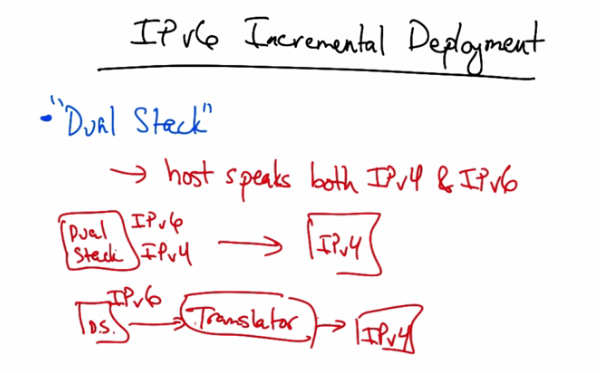 IPv6 Incremental Deployment
• "Dual Stack"
→ host speaks both IPv4 & IPv6
Dual Stack IPv6 IPv4 → IPv4
D.S. IPv6 → Translator → IPv4